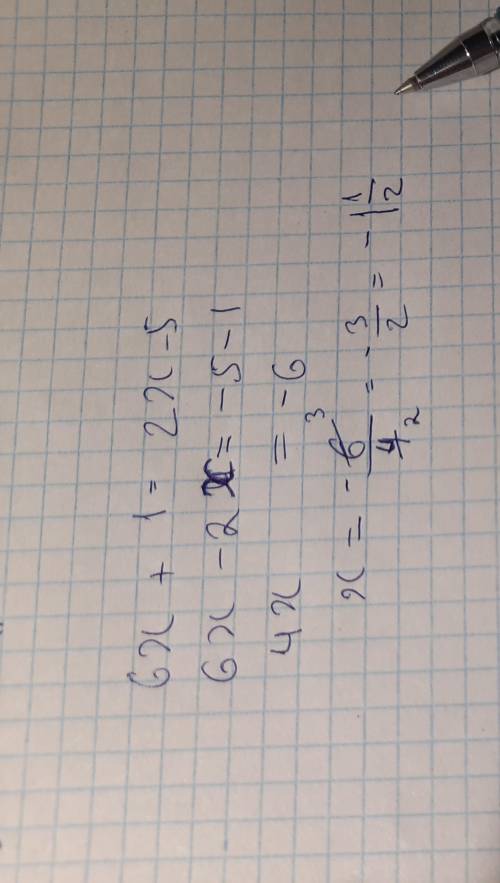 6x + 1 = 2x - 5
6x - 2x = -5 - 1
4x = -6
x = -6/4 = -3/2 = -1 1/2
3
2